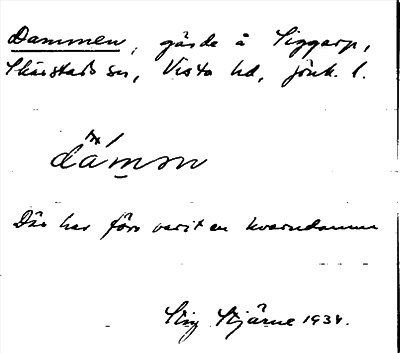 Dammen, gärde å Siggarp,
Skärstads sn, Vista hd, Jönk. l.
dämm
Där har förr varit en kvarndamm
Stig Stjärne 1934.